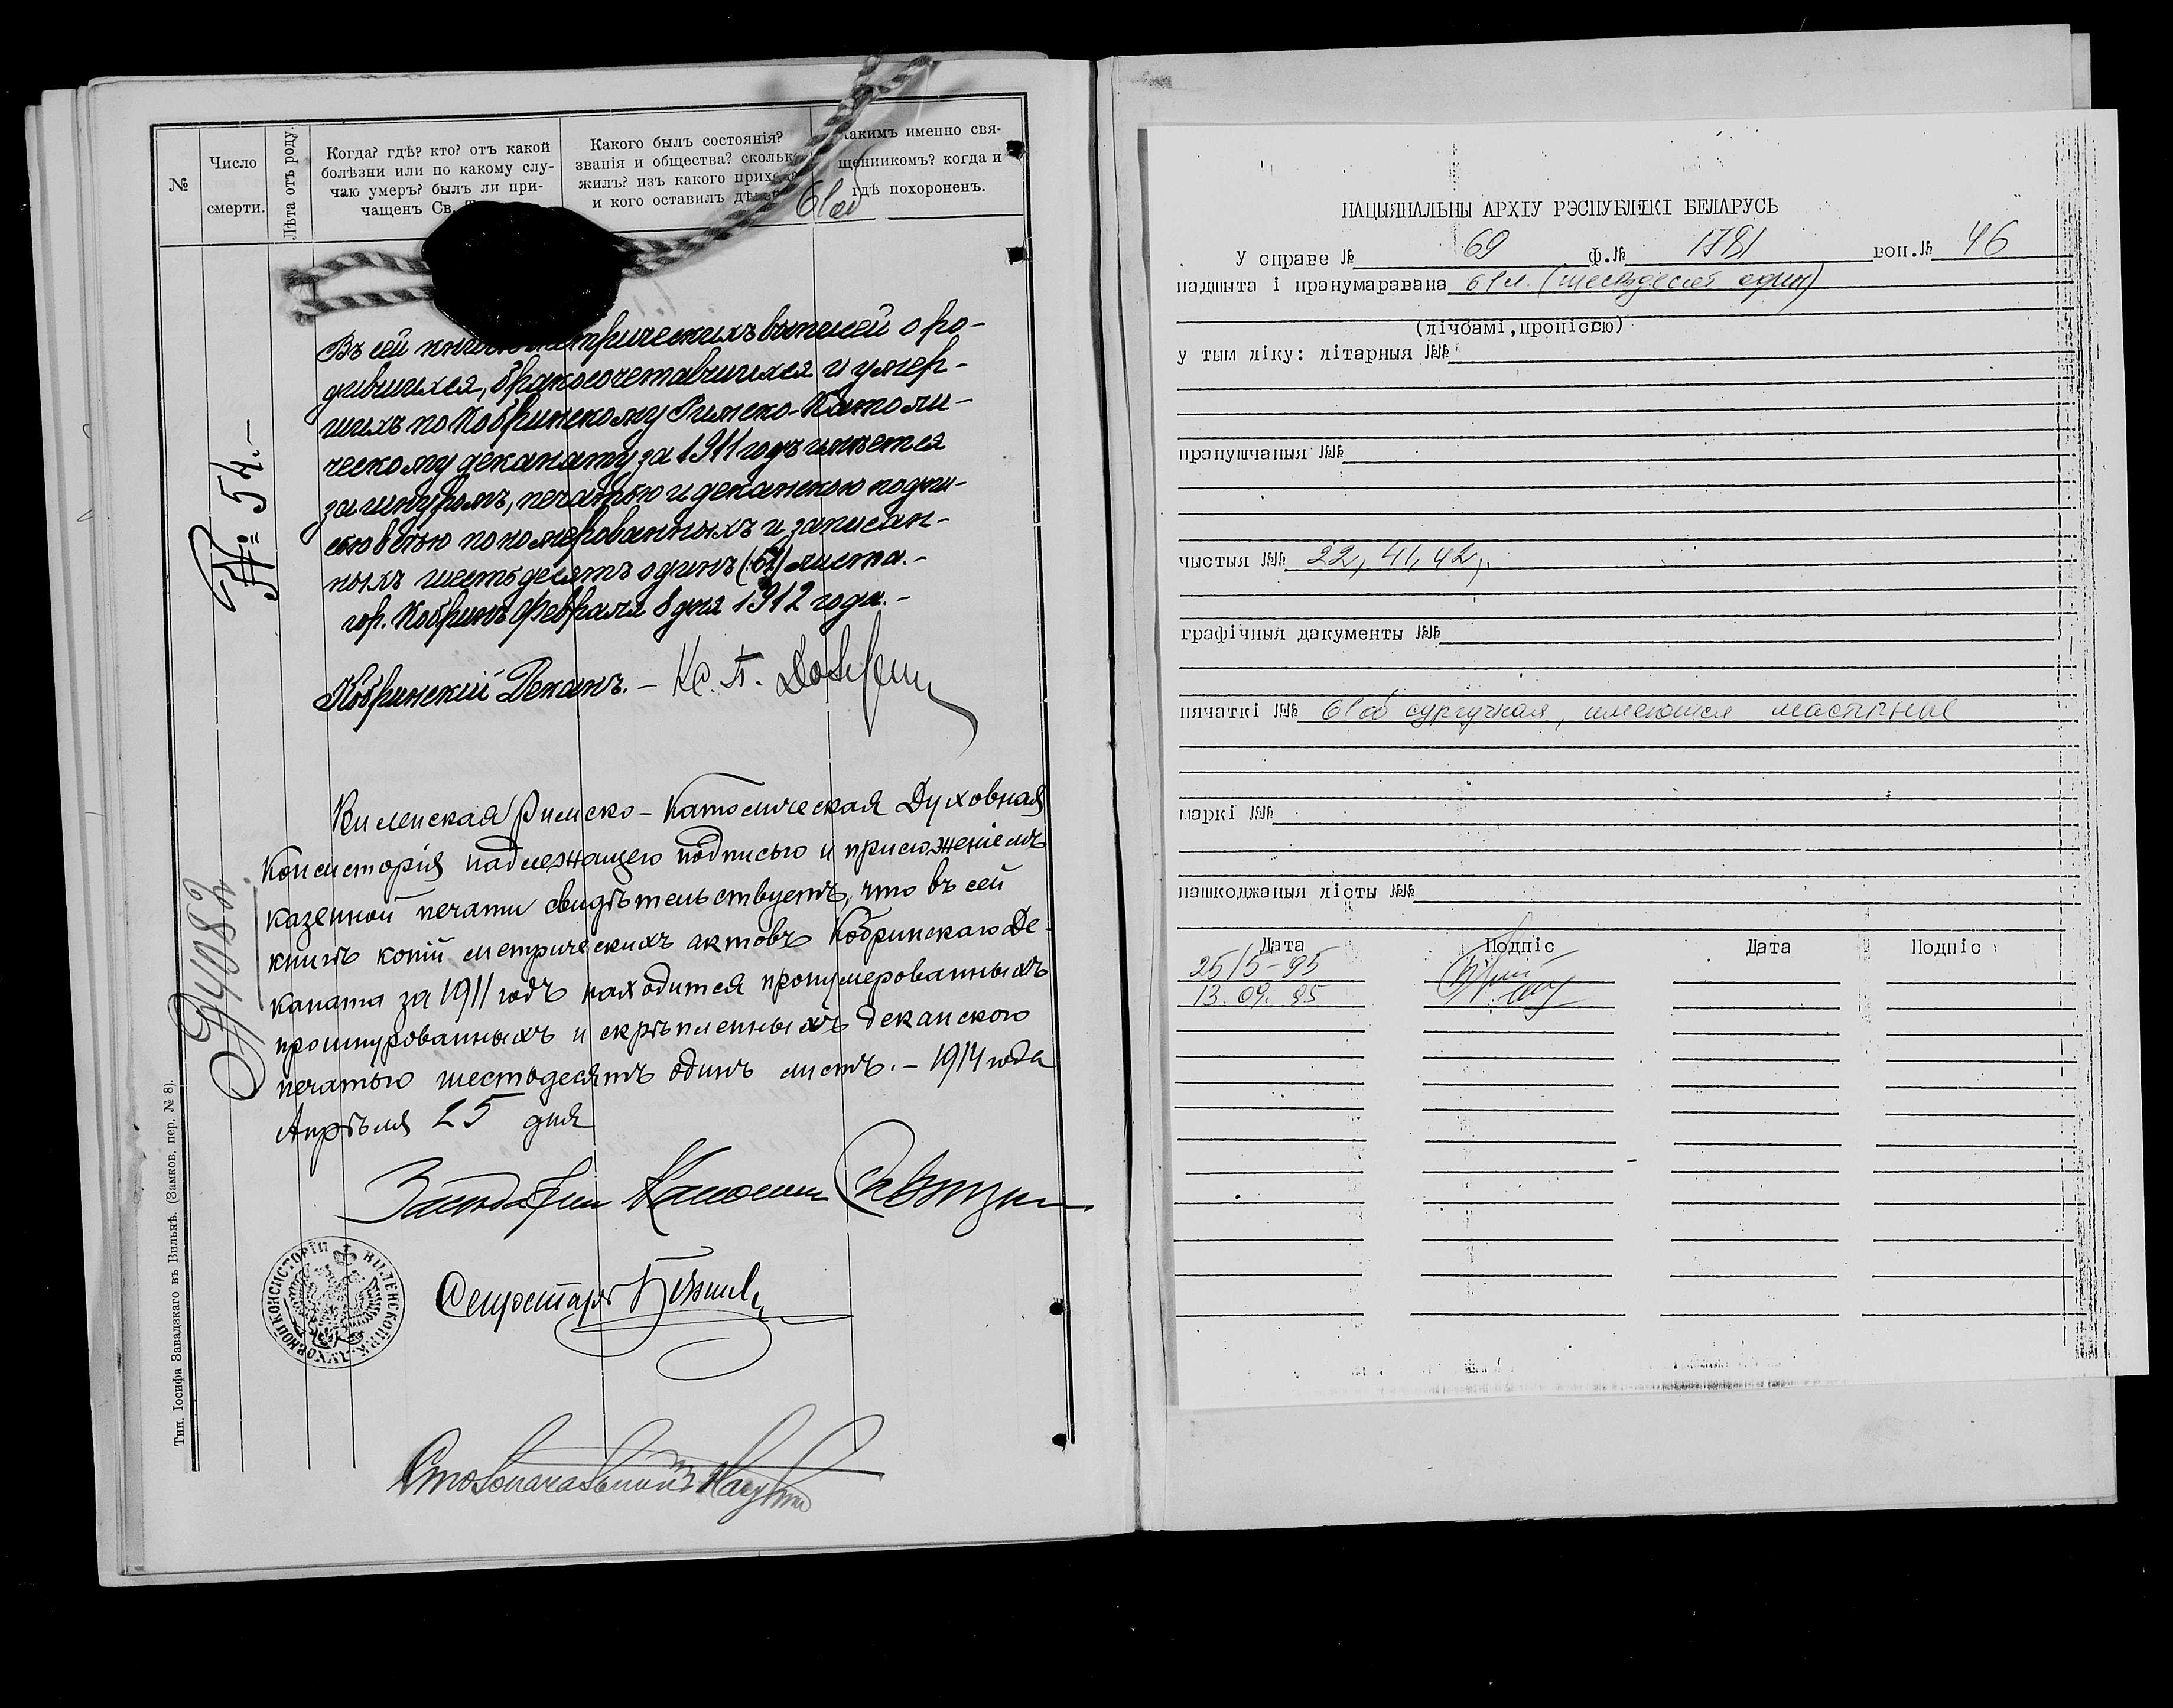 №
Число
смерти.
Лѣта отъ роду.
Когда? гдѣ? кто? отъ какой
болѣзни или по какому слу-
чаю умеръ? былъ ли при-
чащенъ Св.
Какого былъ состоянія?
званія и общества? сколько
жилъ? изъ какого прихода
и кого оставилъ
какимъ именно свя-
щенникомъ? когда и
гдѣ похороненъ.
61об
Въ сей книгѣ метрическихъ выписей о ро-
дившихся, бракосочетавшихся и умер-
шихъ по Кобринскому Римско-Католи-
ческому деканату за 1911 годъ имѣется
за шнуромъ, печатью и деканскою подпи-
сью
пономерованныхъ и записан-
ныхъ шестьдесятъ одинъ (61) листа.-
гор. Кобринъ Февраля 8 дня 1912 года.-
№ 54.-
Кобринскій Деканъ.- Кс. П.
Виленская Римско-Католическая Духовная
Консисторія надлежащею подписью и приложеніемъ
казенной печати свидѣтельствуетъ, что въ сей
книгѣ копій метрическихъ актовъ Кобринскаго Де-
каната за 1911 годъ находится пронумерованныхъ
прошнурованныхъ и скрѣпленныхъ деканскою
печатью шестьдесятъ одинъ листъ.- 1914 года
Апрѣля 25 дня
Засѣдатель Каноникъ
Секретарь
Столоначальникъ
ВИЛЕНСКОЙ Р.К. ДУХОВНОЙ КОНСИСТОРІИ
Тип. Іосифа Завадзкаго въ Вильнѣ. (Замков. пер. № 8).
НАЦЫЯНАЛЬНЫ АРХІУ РЭСПУБЛІКІ БЕЛАРУСЬ
У справе № 69 ф.№ 1781 воп.№ 46
падшыта і пранумаравана 61 л. (шестьдесят один)
(лічбамі,пропіссю)
у тым ліку: літарныя №№
прапушчаныя №№
чыстыя №№ 22, 41, 42,
графічныя дакументы №№
пячаткі №№ 61об сургучная, имеются мастичные
маркі №№
пашкоджаныя лісты №№
Дата Подпіс Дата Подпіс
25/5-95
13.09.95